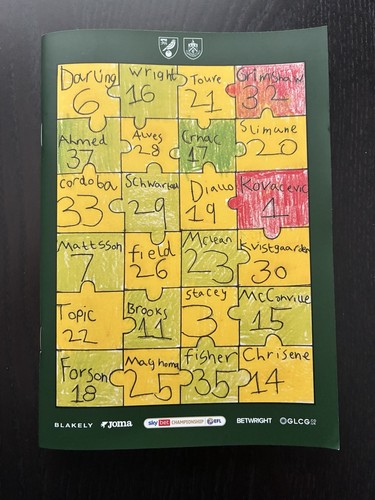 Darling
6
Wright
16
Toure
21
Grimshaw
32
Ahmed
37
Alves
28
Crnac
17
Slimane
20
Cordoba
33
Schwartau
29
Diallo
19
Kovacevic
4
Mattsson
7
field
26
Mclean
23
Kvistgaarden
30
Topic
22
Brooks
11
Stacey
3
McConville
15
Forson
18
Maghoma
25
fisher
35
Chrisene
14
BLAKELY
Joma
sky bet CHAMPIONSHIP EFL
BETWRIGHT
GLCG